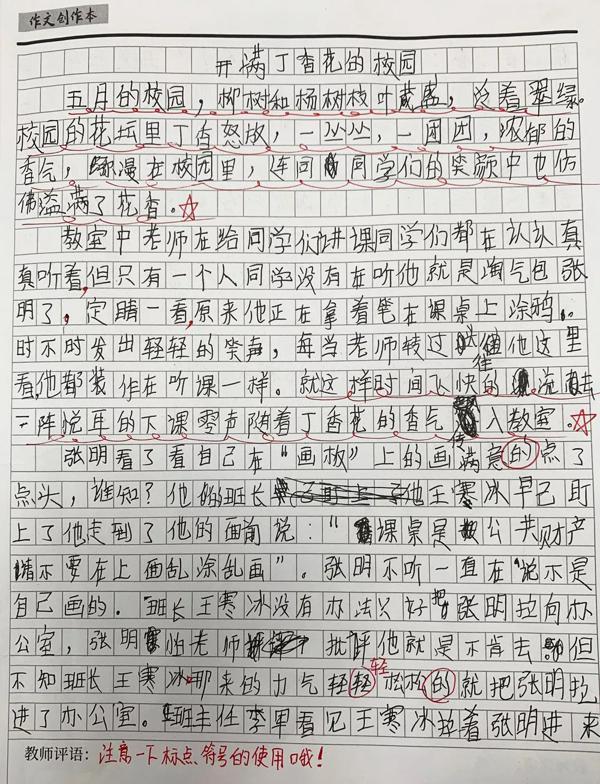 作文创作本
开满丁香花的校园
五月的校园，柳树和杨树枝叶茂盛，泛着翠绿。
校园的花坛里丁香怒放，一丛丛，一团团，浓郁的
香气，弥漫在校园里，连同同学们的笑颜中也仿
佛溢满了花香。
教室中老师在给同学们讲课同学们都在认认真
真听着，但只有一个人同学没有在听他就是淘气包张
明了，定睛一看，原来他正在拿着笔在课桌上涂鸦，
时不时发出轻轻的笑声，每当老师转过 往他这里
看，他都装作在听课一样。就这样时间飞快的流去
一阵悦耳的下课零声随着丁香花的香气传入教室。
张明看了看自己在“画板”上的画满意的点了
点头，谁知？他的班长 王寒冰早已盯
上了他走到了他的面前说：“课桌是公共财产
请不要在上面乱涂乱画”。张明不听一直在说不是
自己画的。班长王寒冰没有办法只好把张明拉向办
公室，张明怕老师批评他就是不肯去。但
不知班长王寒冰那来的力气轻轻松松的就把张明拉
轻
进了办公室。班主任李军看见王寒冰拉着张明进来
教师评语：注意一下标点符号的使用哦！